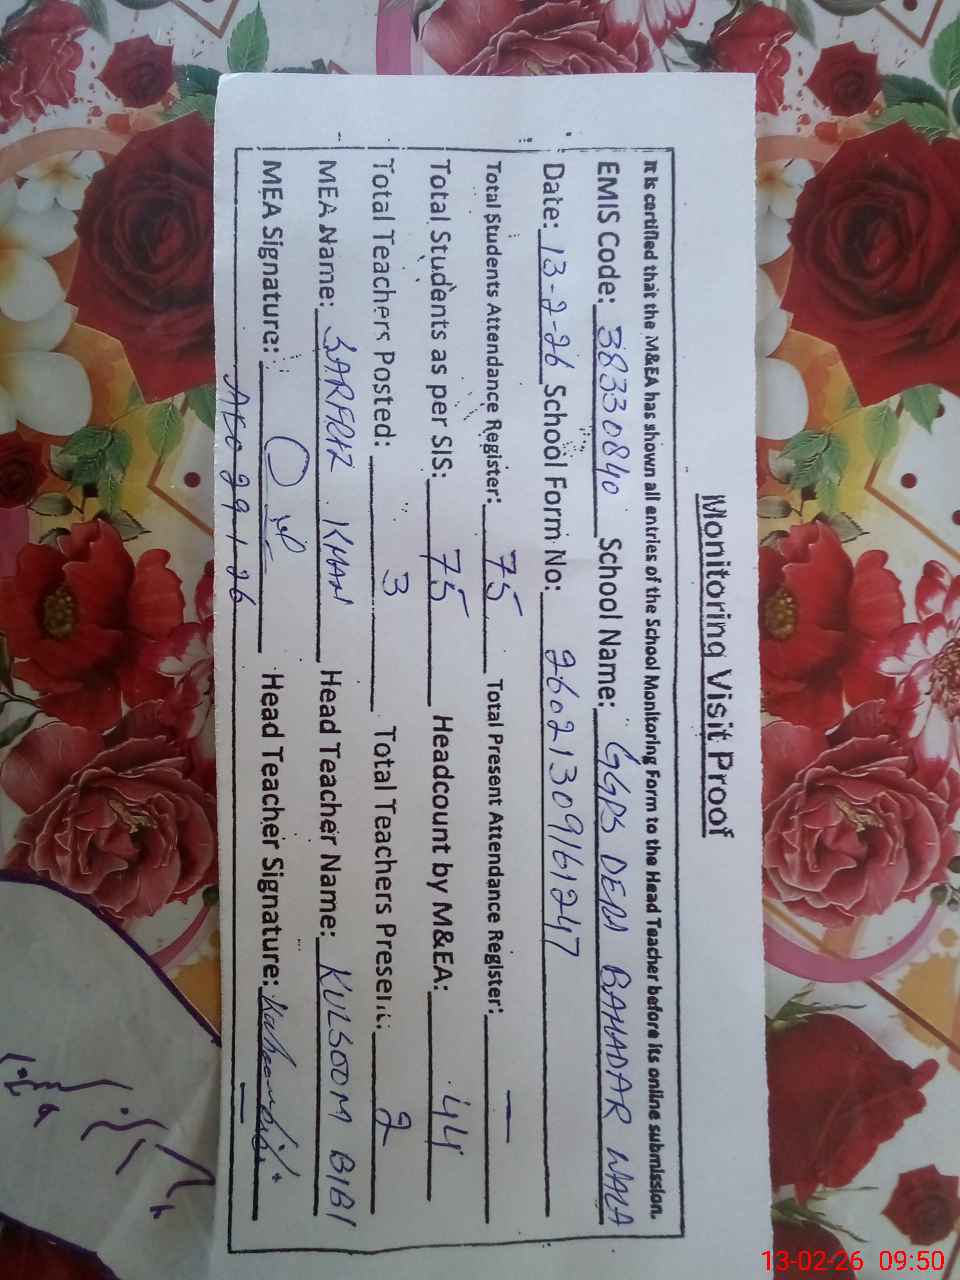 Monitoring Visit Proof
It is certified that the M&EA has shown all entries of the School Monitoring Form to the Head Teacher before its online submission.
EMIS Code: 38330840 School Name: GGPS DERA BAHADAR WALA
Date: 13-2-26 School Form No: 26021309161247
Total Students Attendance Register: 75 Total Present Attendance Register: —
Total Students as per SIS: 75 Headcount by M&EA: 44
Total Teachers Posted: 3 Total Teachers Present: 2
MEA Name: SARFRAZ KHAN Head Teacher Name: KULSOOM BIBI
MEA Signature: Head Teacher Signature:
29-1-26
13-02-26 09:50